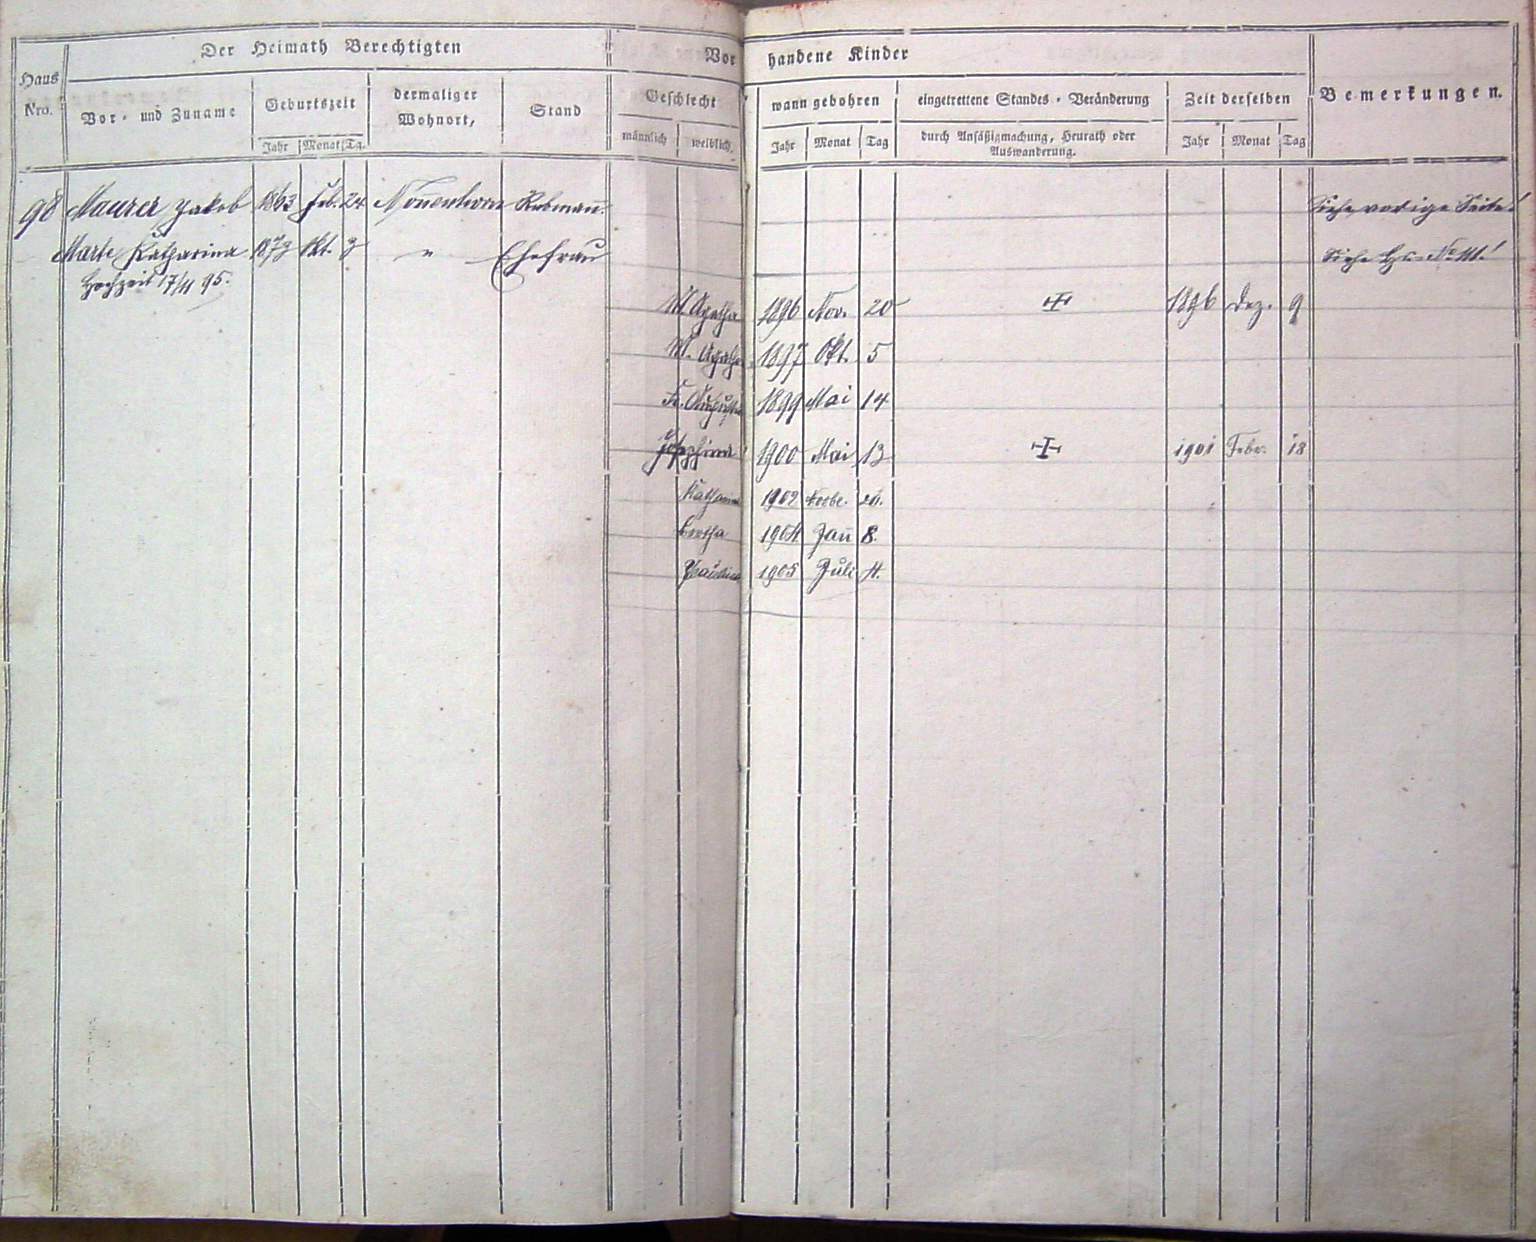 Der Heimath Berechtigten
Vorhandene Kinder
Haus Nro.
Vor- und Zuname
Geburtszeit
Jahr Monat Tg.
dermaliger Wohnort,
Stand
Geschlecht
männlich weiblich.
wann gebohren
Jahr Monat Tag
eingetrettene Standes-Veränderung
durch Ansäßigmachung, Heurath oder
Auswanderung.
Zeit derselben
Jahr Monat Tag
Bemerkungen.
98 Maurer Jakob 1863 Feb. 24 Nonnenhorn Rebmañ. Siehe vorige Seite!
Marte Katharina 1873 Okt. 3 " Ehefrau Siehe Hs No 111!
Hochzeit 17/11 95.
M. Agatha 1896 Nov. 20 1896 Dez. 9
M. Agatha 1897 Okt. 5
Fr. 1899 Mai 14
Josephina 1900 Mai 13 1901 Febr. 18
Katharina 1902 Novbr.
Bertha 1904 Jañ 8.
1905 Juli 4.